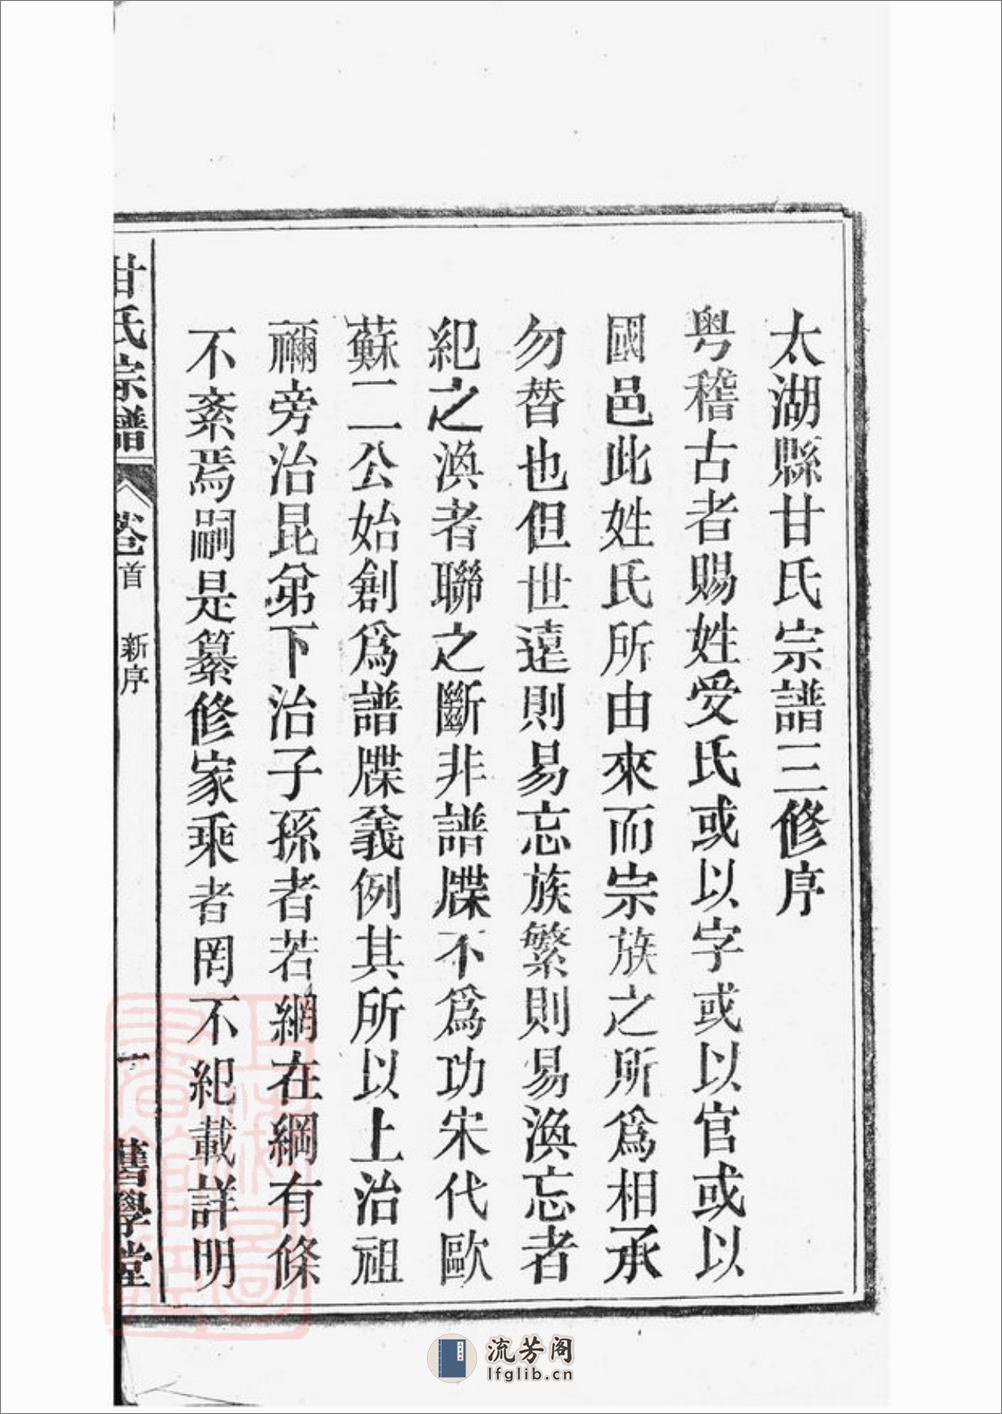 太湖縣甘氏宗譜三修序
粤稽古者賜姓受氏或以字或以官或以
國邑此姓氏所由來而宗族之所爲相承
勿替也但世遠則易忘族繁則易渙忘者
紀之渙者聯之斷非譜牒不爲功宋代歐
蘇二公始創爲譜牒義例其所以上治祖
禰旁治昆弟下治子孫者若網在綱有條
不紊焉嗣是纂修家乘者罔不紀載詳明
甘氏宗譜
卷首
新序
一
舊學堂
流芳阁
lfglib.cn